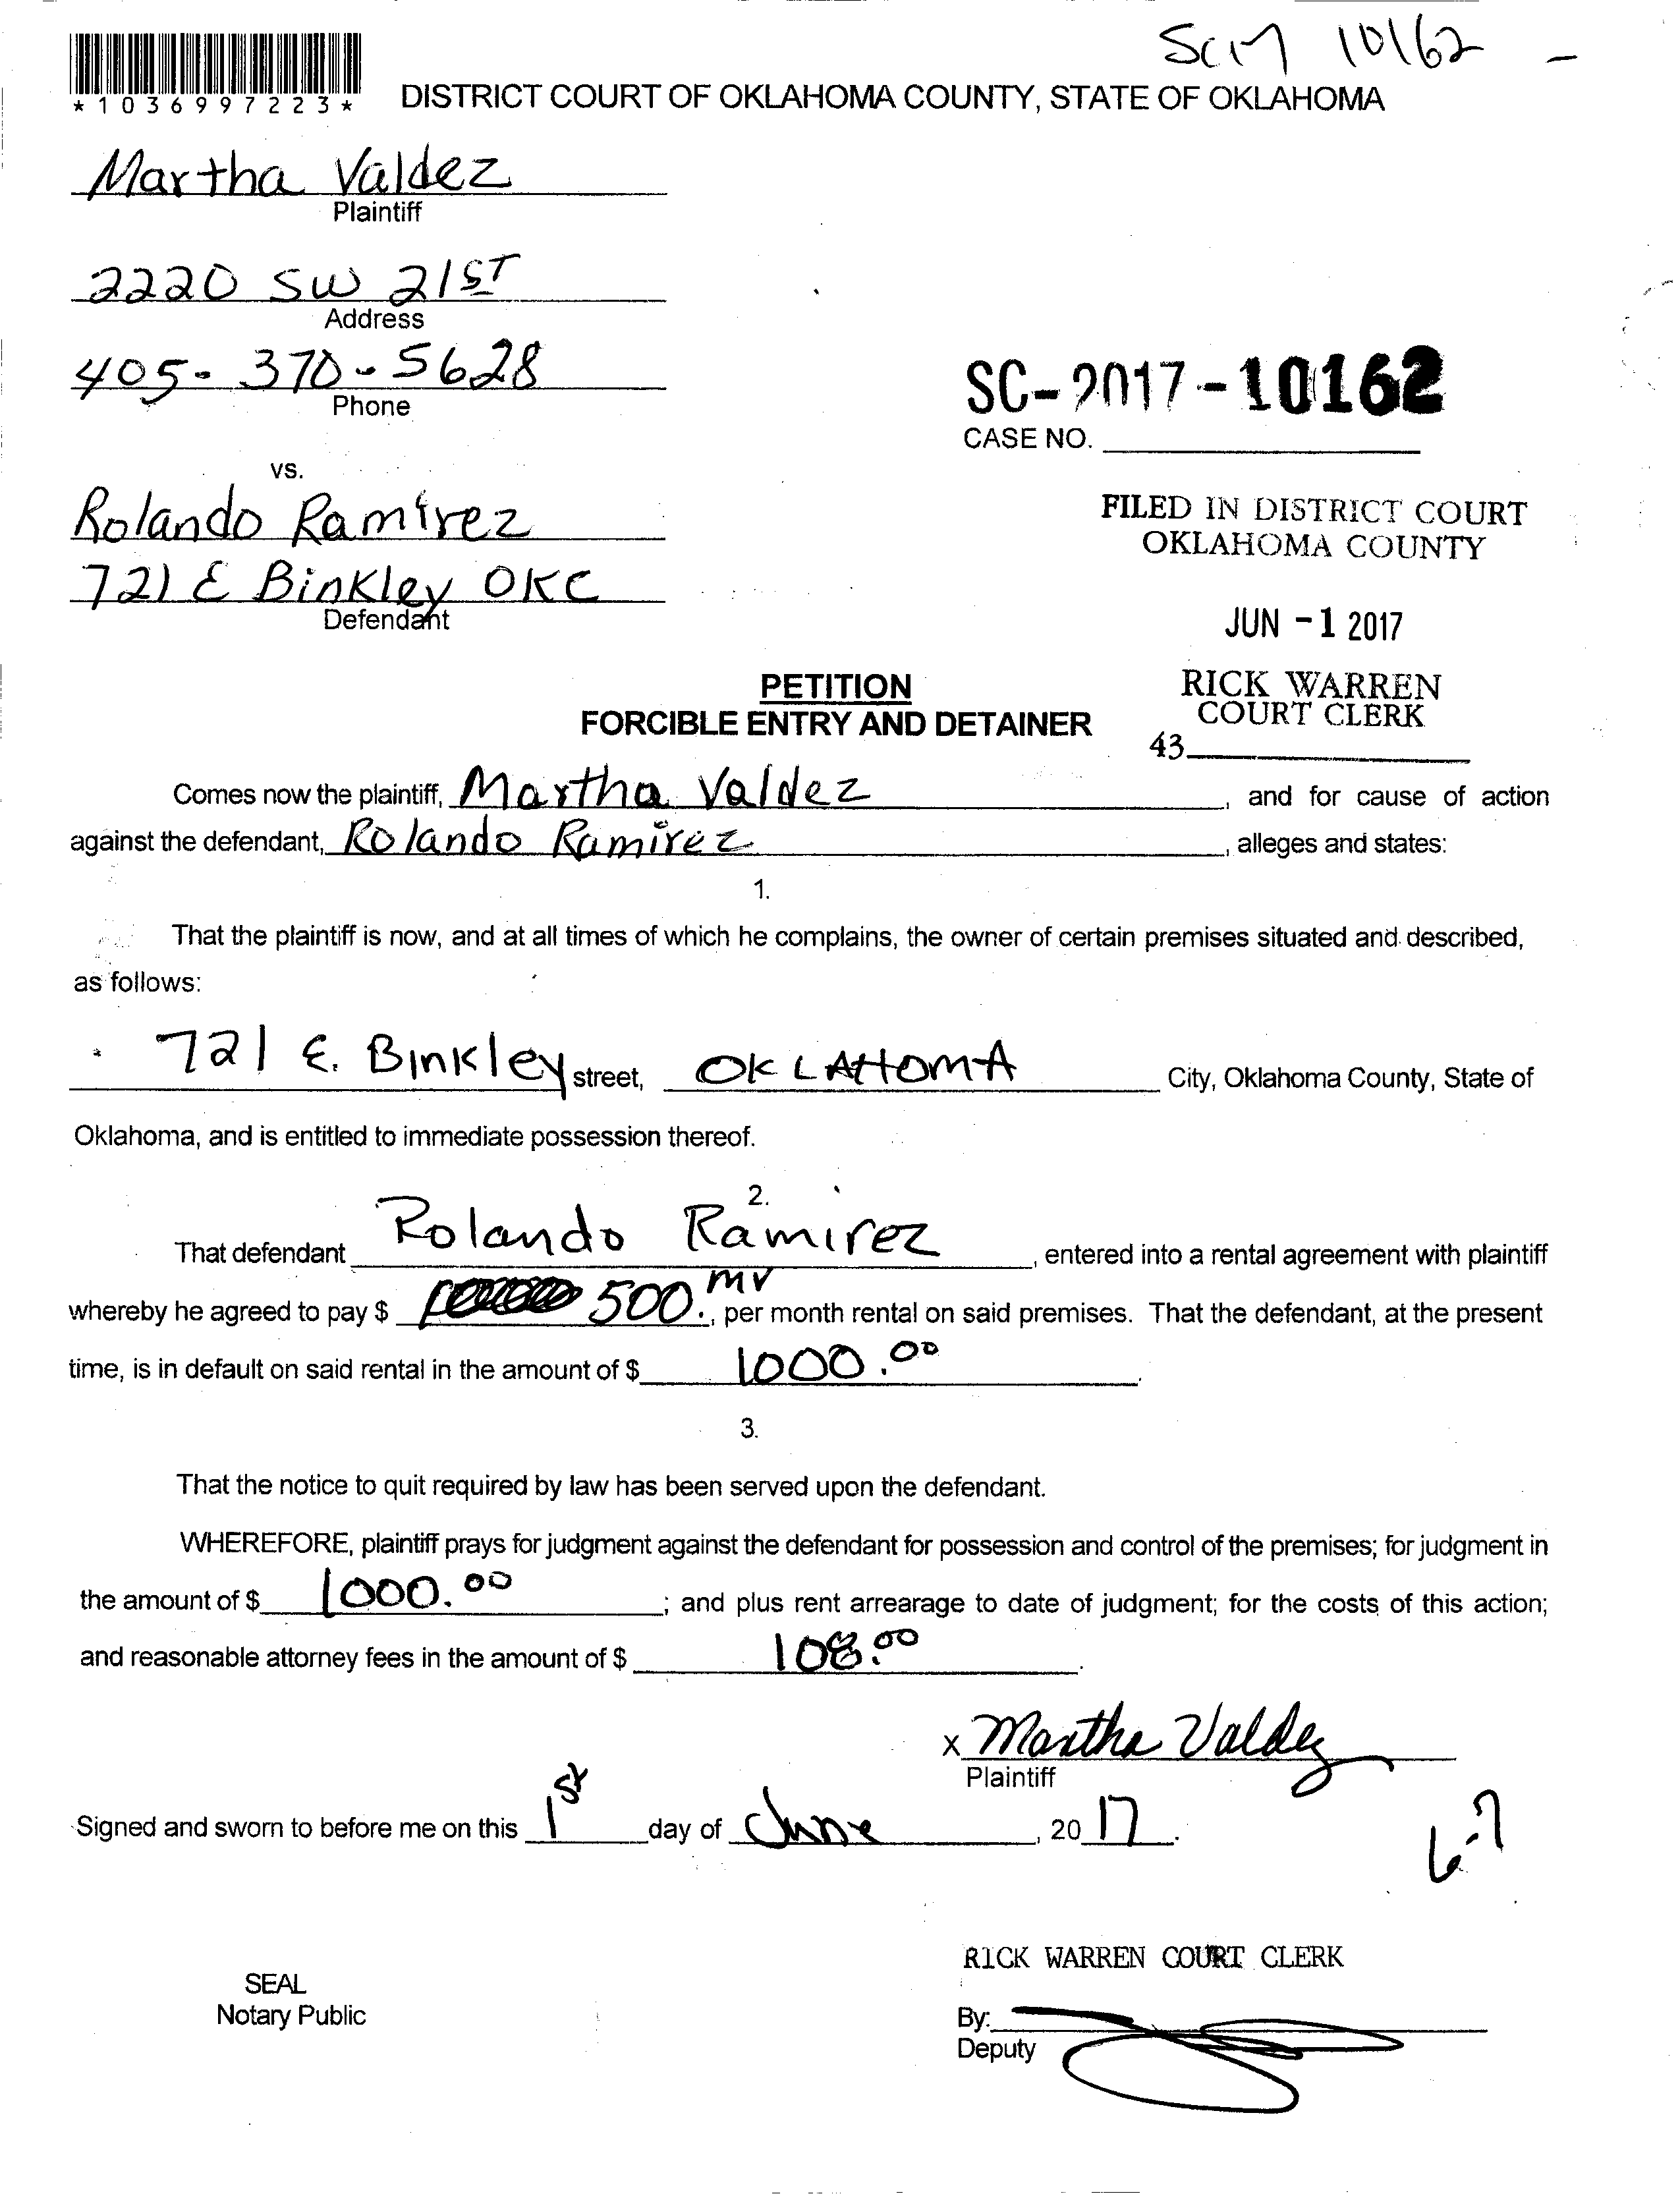 SC17 10162 -
*1036997223*
DISTRICT COURT OF OKLAHOMA COUNTY, STATE OF OKLAHOMA
Martha Valdez
Plaintiff
2220 SW 21ST
Address
405-370-5628
Phone
SC-2017-10162
CASE NO.
vs.
Rolando Ramirez
721 E Binkley OKC
Defendant
FILED IN DISTRICT COURT
OKLAHOMA COUNTY
JUN -1 2017
RICK WARREN
COURT CLERK
43
PETITION
FORCIBLE ENTRY AND DETAINER
Comes now the plaintiff, Martha Valdez, and for cause of action
against the defendant, Rolando Ramirez, alleges and states:
1.
That the plaintiff is now, and at all times of which he complains, the owner of certain premises situated and described,
as follows:
721 E. Binkley street, OKLAHOMA City, Oklahoma County, State of
Oklahoma, and is entitled to immediate possession thereof.
2.
That defendant Rolando Ramirez, entered into a rental agreement with plaintiff
whereby he agreed to pay $ 500. MV, per month rental on said premises. That the defendant, at the present
time, is in default on said rental in the amount of $ 1000.00.
3.
That the notice to quit required by law has been served upon the defendant.
WHEREFORE, plaintiff prays for judgment against the defendant for possession and control of the premises; for judgment in
the amount of $ 1000.00; and plus rent arrearage to date of judgment; for the costs of this action;
and reasonable attorney fees in the amount of $ 108.00.
x Martha Valdez
Plaintiff
Signed and sworn to before me on this 1st day of June, 2017.
6-7
RICK WARREN COURT CLERK
SEAL
Notary Public
By:
Deputy